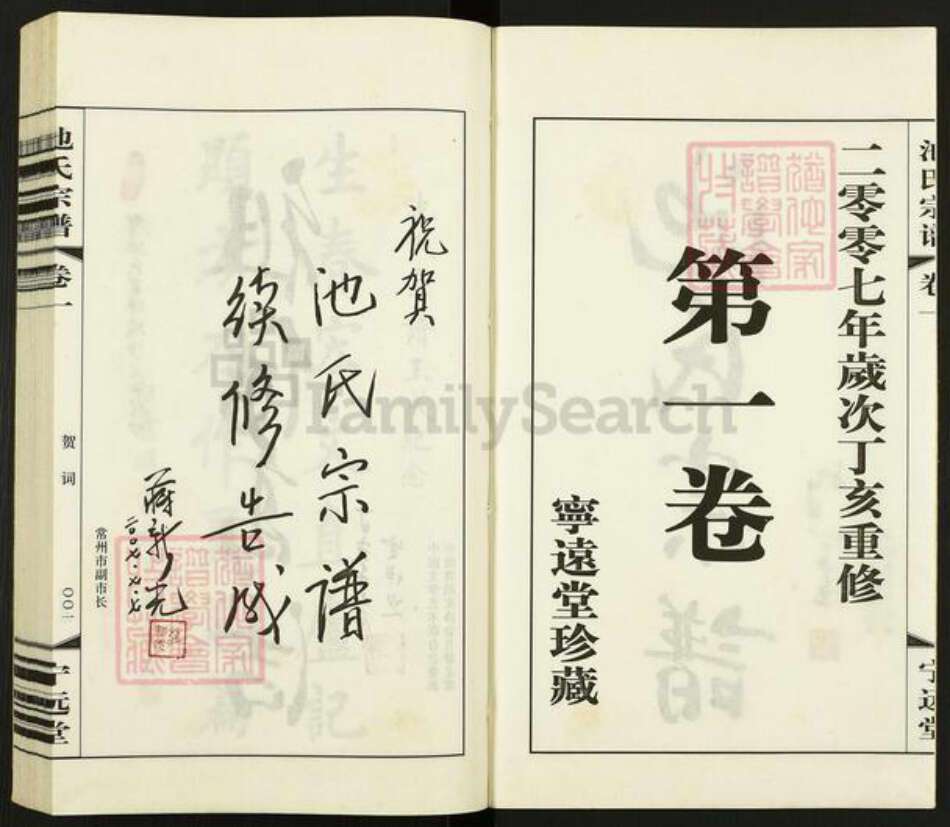 二零零七年歲次丁亥重修
第一卷
寧遠堂珍藏
池氏宗谱
卷一
宁远堂
祝賀
池氏宗譜
续修告成
蒋新光
二〇〇七.九.七
常州市副市长
池氏宗谱
卷一
贺词
〇〇一
宁远堂
FamilySearch